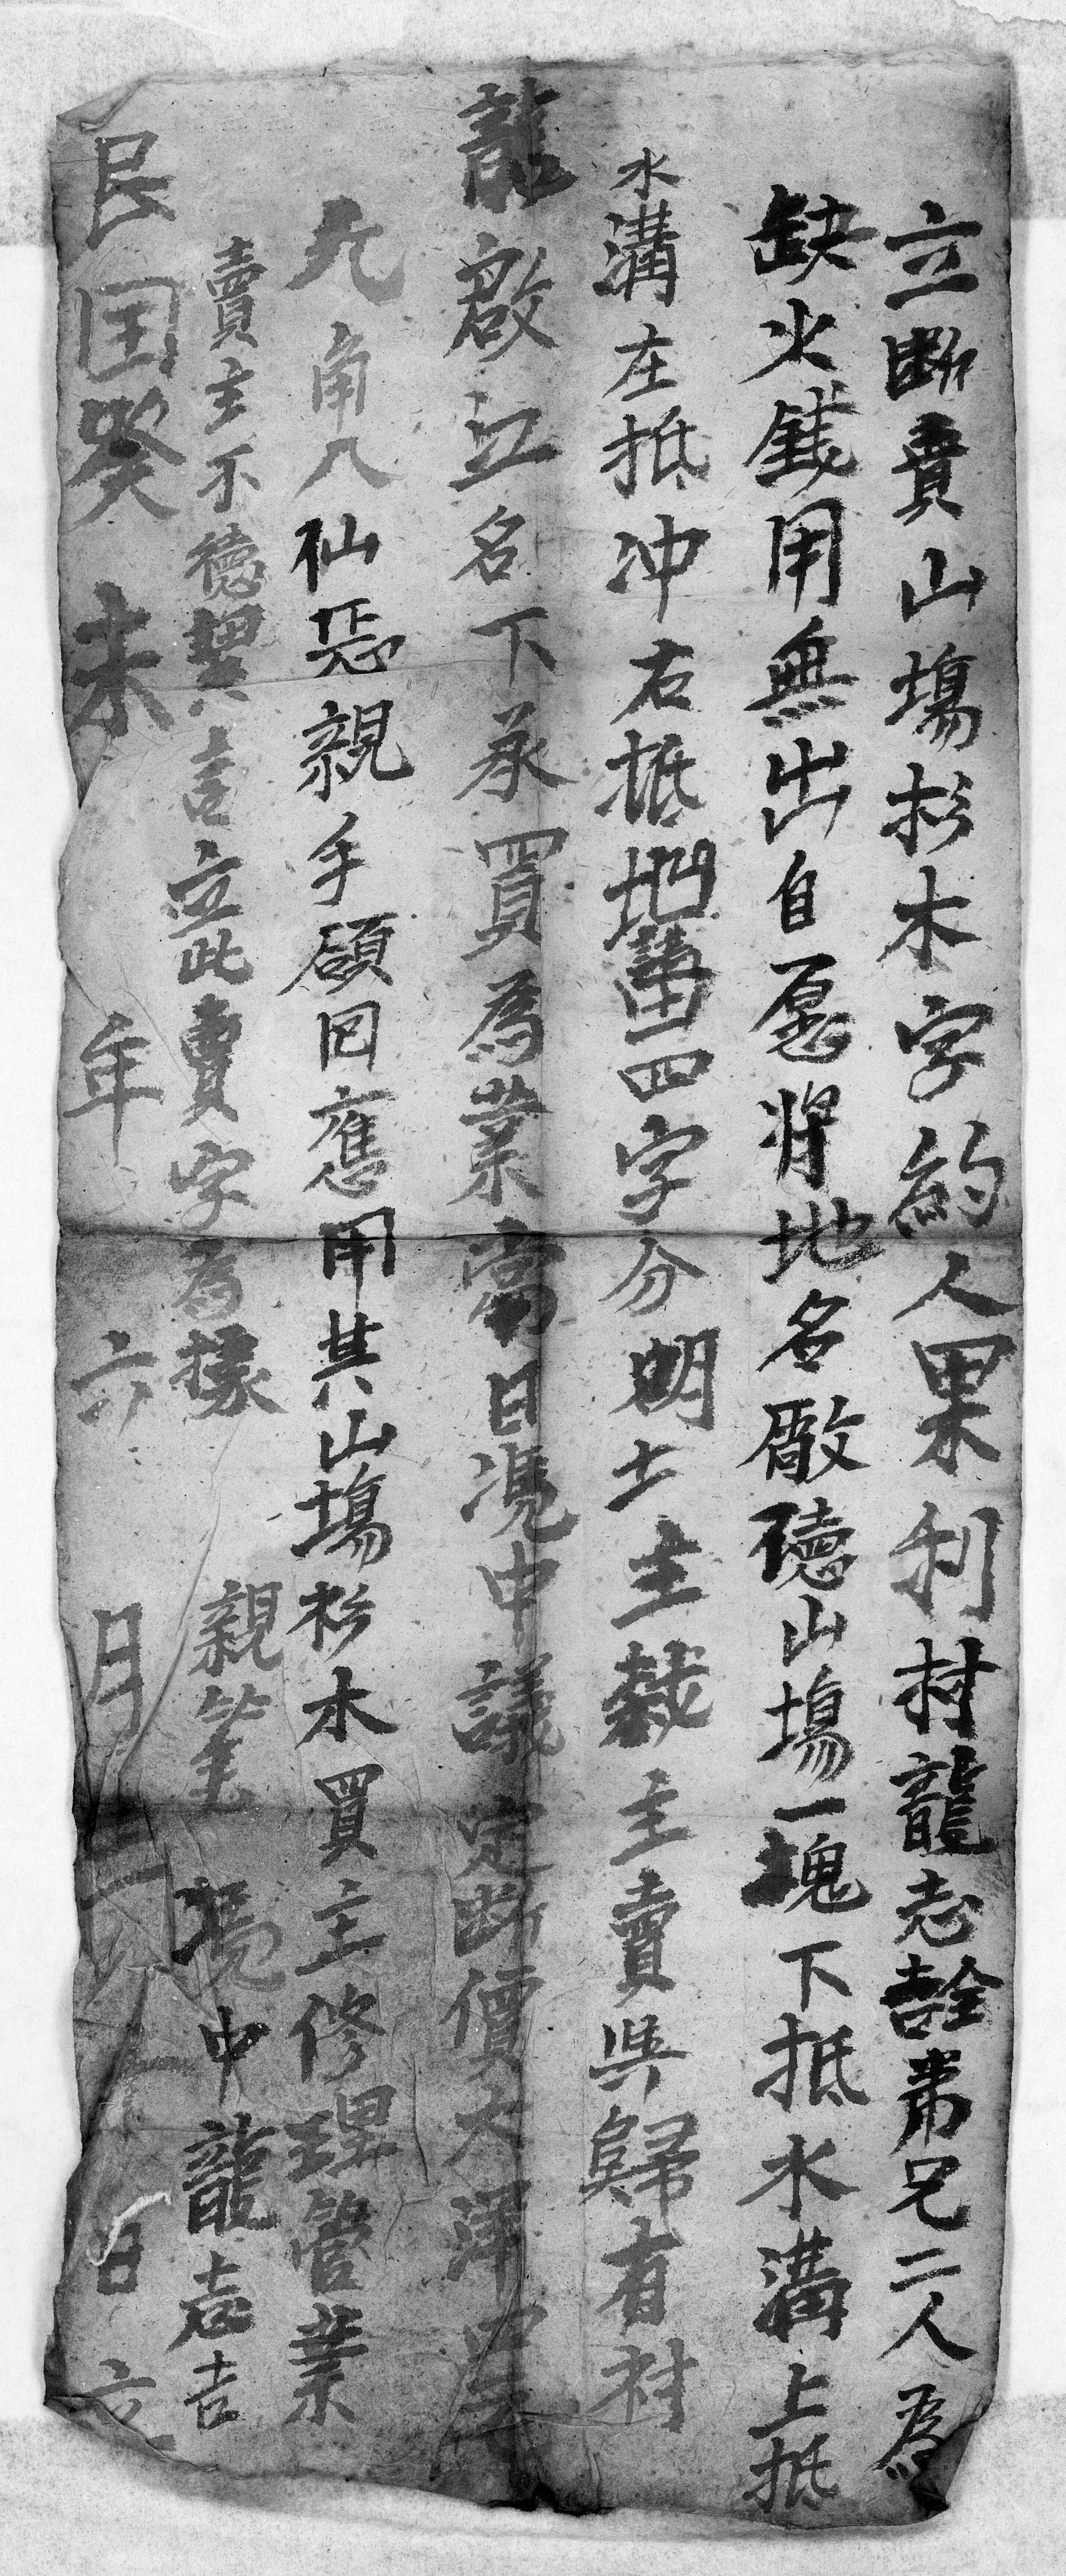 立断賣山塲杉木字約人果利村龍志喆弟兄二人為
缺火錢用無出自愿將地名厰德山塲一塊下抵水溝上抵
水溝左抵冲右抵四字分明土主栽主賣與歸有村
龍啟江名下承買為業當日憑中議定断價大洋四元
九角八仙恁親手領囘應用其山塲杉木買主修理管業
賣主不德異言立此賣字為據 親筆 憑中龍志吉
民国癸未年六月二日立